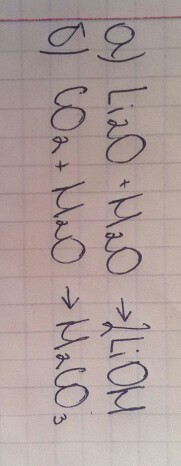 а) Li₂O + H₂O → 2LiOH
б) CO₂ + H₂O → H₂CO₃